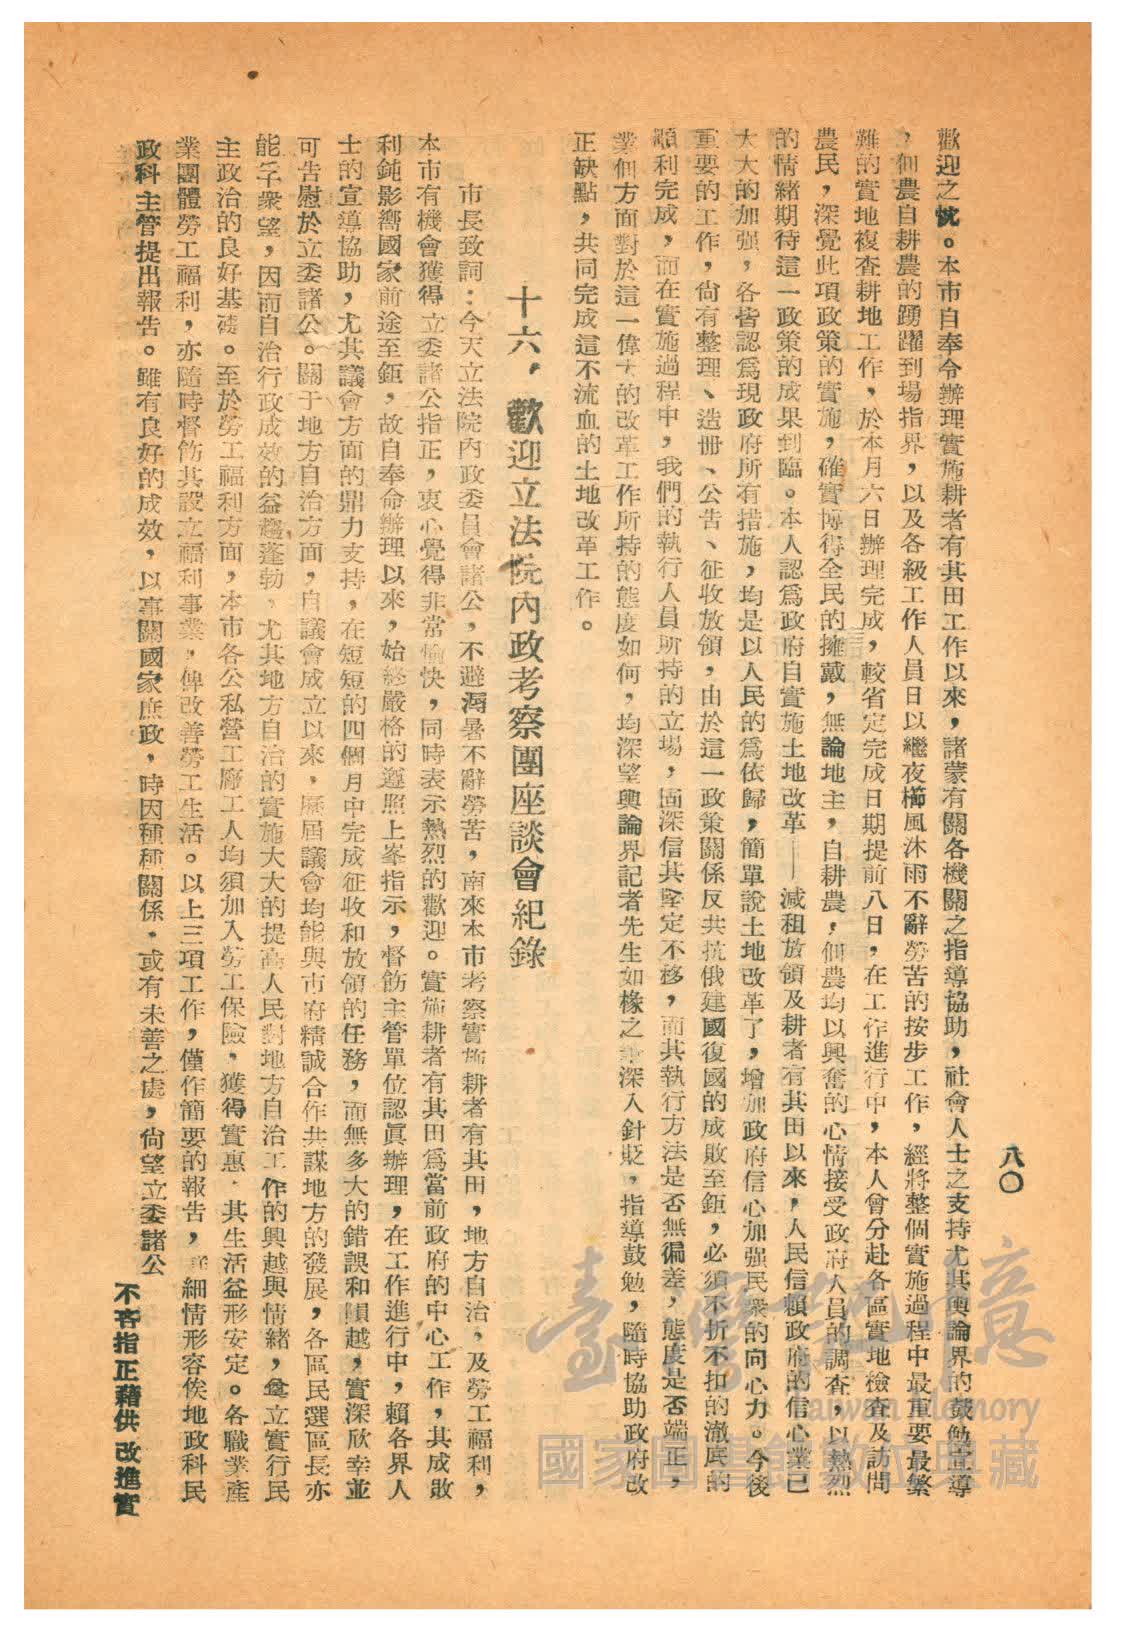 八〇
歡迎之忱。本市自奉令辦理實施耕者有其田工作以來,諸蒙有關各機關之指導協助,社會人士之支持尤其輿論界的鼓勉宣導
,佃農自耕農的踴躍到場指界,以及各級工作人員日以繼夜櫛風沐雨不辭勞苦的按步工作,經將整個實施過程中最重要最繁
難的實地複查耕地工作,於本月六日辦理完成,較省定完成日期提前八日,在工作進行中,本人曾分赴各區實地檢查及訪問
農民,深覺此項政策的實施,確實博得全民的擁戴,無論地主,自耕農,佃農均以興奮的心情接受政府人員的調查,以熱烈
的情緒期待這一政策的成果到臨。本人認爲政府自實施土地改革——減租放領及耕者有其田以來,人民信賴政府的信心業已
大大的加强,各皆認爲現政府所有措施,均是以人民的爲依歸,簡單說土地改革了,增加政府信心加强民衆的向心力。今後
重要的工作,尙有整理、造册、公告、征收放領,由於這一政策關係反共抗俄建國復國的成敗至鉅,必須不折不扣的澈底的
順利完成,而在實施過程中,我們的執行人員所持的立場,固深信其堅定不移,而其執行方法是否無偏差,態度是否端正,
業佃方面對於這一偉大的改革工作所持的態度如何,均深望輿論界記者先生如椽之筆深入針貶,指導鼓勉,隨時協助政府改
正缺點,共同完成這不流血的土地改革工作。
十六,歡迎立法院內政考察團座談會紀錄
市長致詞:今天立法院內政委員會諸公,不避溽暑不辭勞苦,南來本市考察實施耕者有其田,地方自治,及勞工福利,
本市有機會獲得立委諸公指正,衷心覺得非常愉快,同時表示熱烈的歡迎。實施耕者有其田爲當前政府的中心工作,其成敗
利鈍影嚮國家前途至鉅,故自奉命辦理以來,始終嚴格的遵照上峯指示,督飭主管單位認眞辦理,在工作進行中,賴各界人
士的宣導協助,尤其議會方面的鼎力支持,在短短的四個月中完成征收和放領的任務,而無多大的錯誤和隕越,實深欣幸並
可告慰於立委諸公。關于地方自治方面,自議會成立以來,歷屆議會均能與市府精誠合作共謀地方的發展,各區民選區長亦
能孚衆望,因而自治行政成效的益趨蓬勃,尤其地方自治的實施大大的提高人民對地方自治工作的興越與情緒,奠立實行民
主政治的良好基礎。至於勞工福利方面,本市各公私營工廠工人均須加入勞工保險,獲得實惠,其生活益形安定。各職業產
業團體勞工福利,亦隨時督飭其設立福利事業,俾改善勞工生活。以上三項工作,僅作簡要的報告,詳細情形容俟地政科民
政科主管提出報告。雖有良好的成效,以事關國家庶政,時因種種關係,或有未善之處,尙望立委諸公不吝指正藉供改進實
臺灣記憶
Taiwan Memory
國家圖書館數位典藏